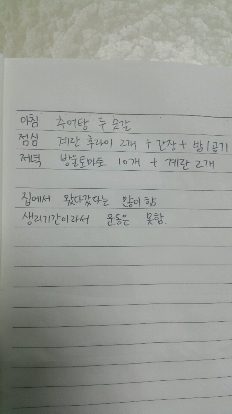 아침 추어탕 두 숟갈
점심 계란 후라이 2개 + 간장 + 밥1공기
저녁 방울토마토 10개 + 계란 2개
집에서 왔다갔다는 많이 함
생리기간이라서 운동은 못함.